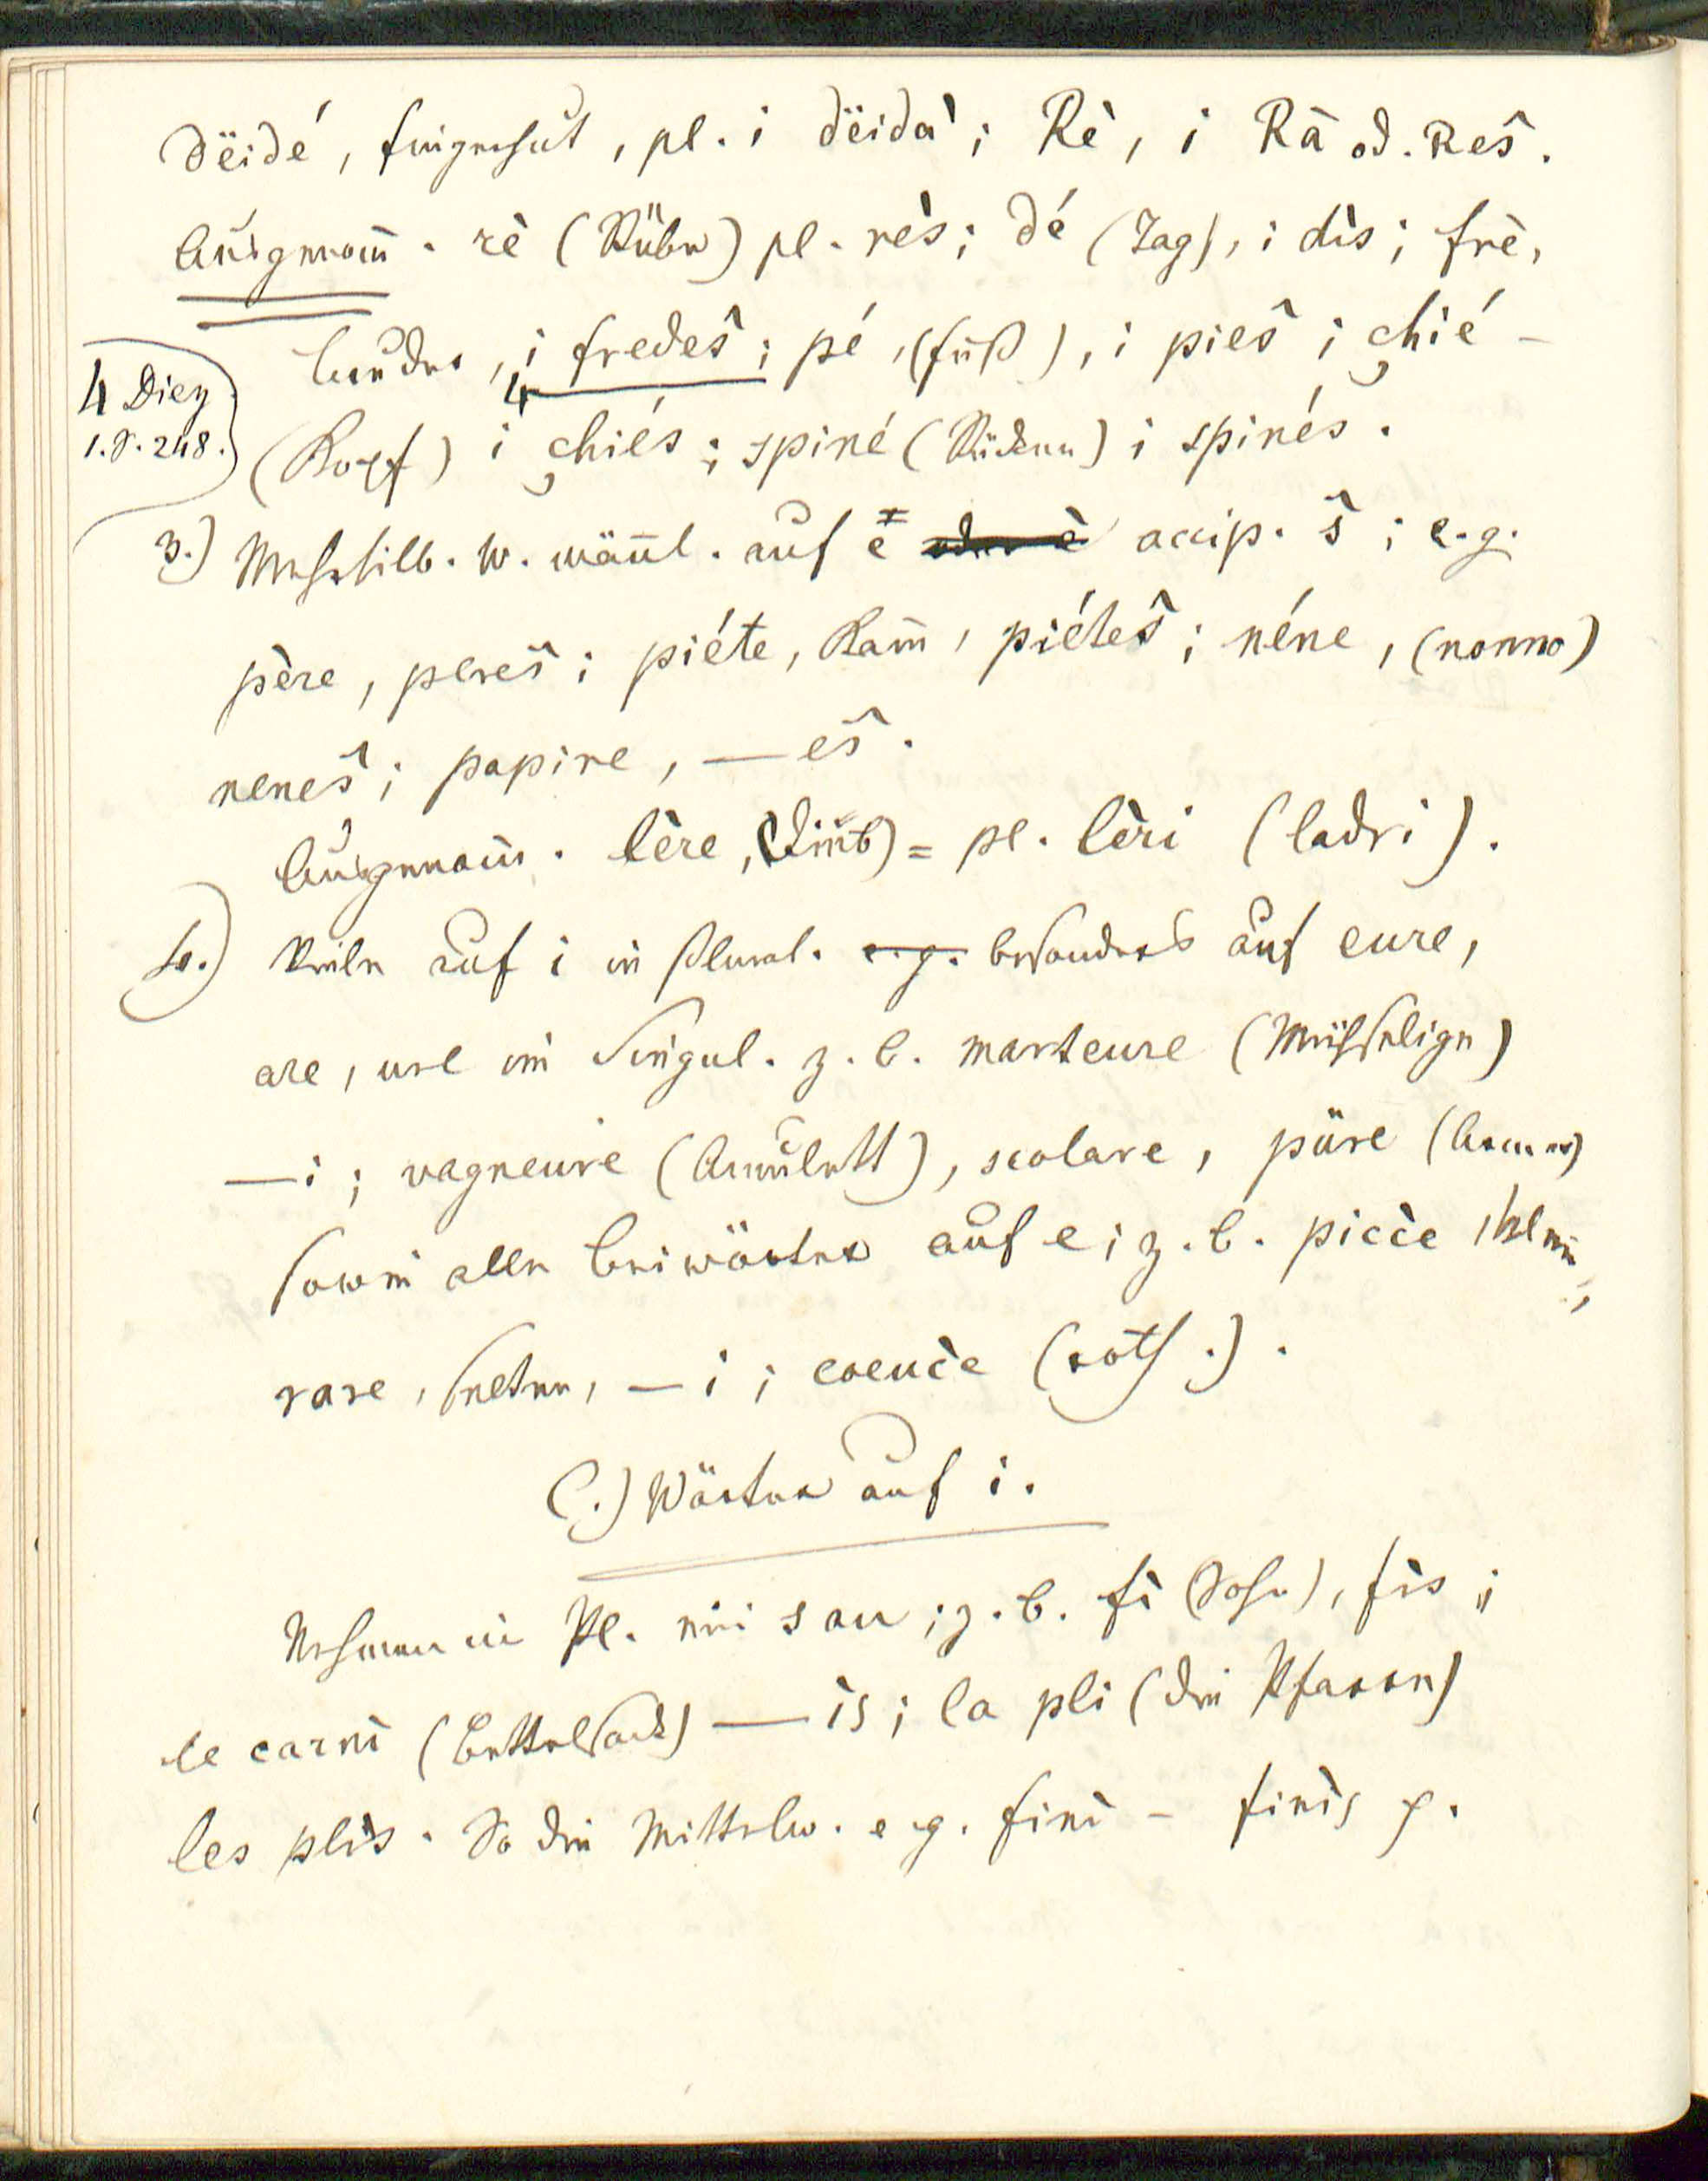 dëidé, fingerhut, pl. i dëidà; Rè, i Rà od. Res̃.
Ausgenom̄. rè (Rübe) pl. rès; dé (Tag), i dis; frè,
bruder, i fredes̃; pé, (fuß), i pies̃; chié –
4 Diez
1. S. 248.
(Kopf) i chiés; spiné (Rücken) i spinés.
3.) Mehrsilb. W. män̄l. auf e accip. s̃; e.g.
père, peres̃; piéte, Kam̄, piétes̃; néne, (nonno)
nenes̃; papire, — es̃.
Ausgenom̄. lère, (Dieb) = pl. lèri (ladri).
4.) Viele auf i in Plural. e.g. besonders auf eure,
are, ure im Singul. z. b. marteure (Mühselige)
— i; vagneure (Amulett), scolare, püre (Armer)
sowie alle beiwörter auf e; z. b. picce, klein,
rare, selten, – i; coeuce (roth.).
C.) Wörter auf i.
Nehmen im Pl. ein s an; z. b. fì (Sohn), fìs;
le carnì (bettelsack) — ìs; la pli (die Pfarre)
les plìs. So die Mittelw. e.g. finì – finìs p.